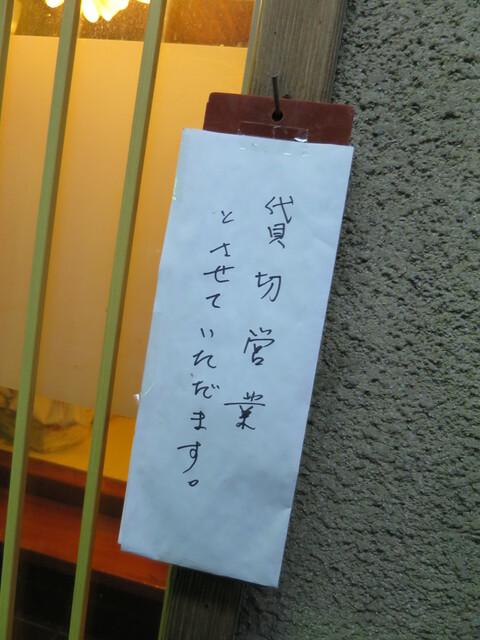 貸切営業
とさせていただます。